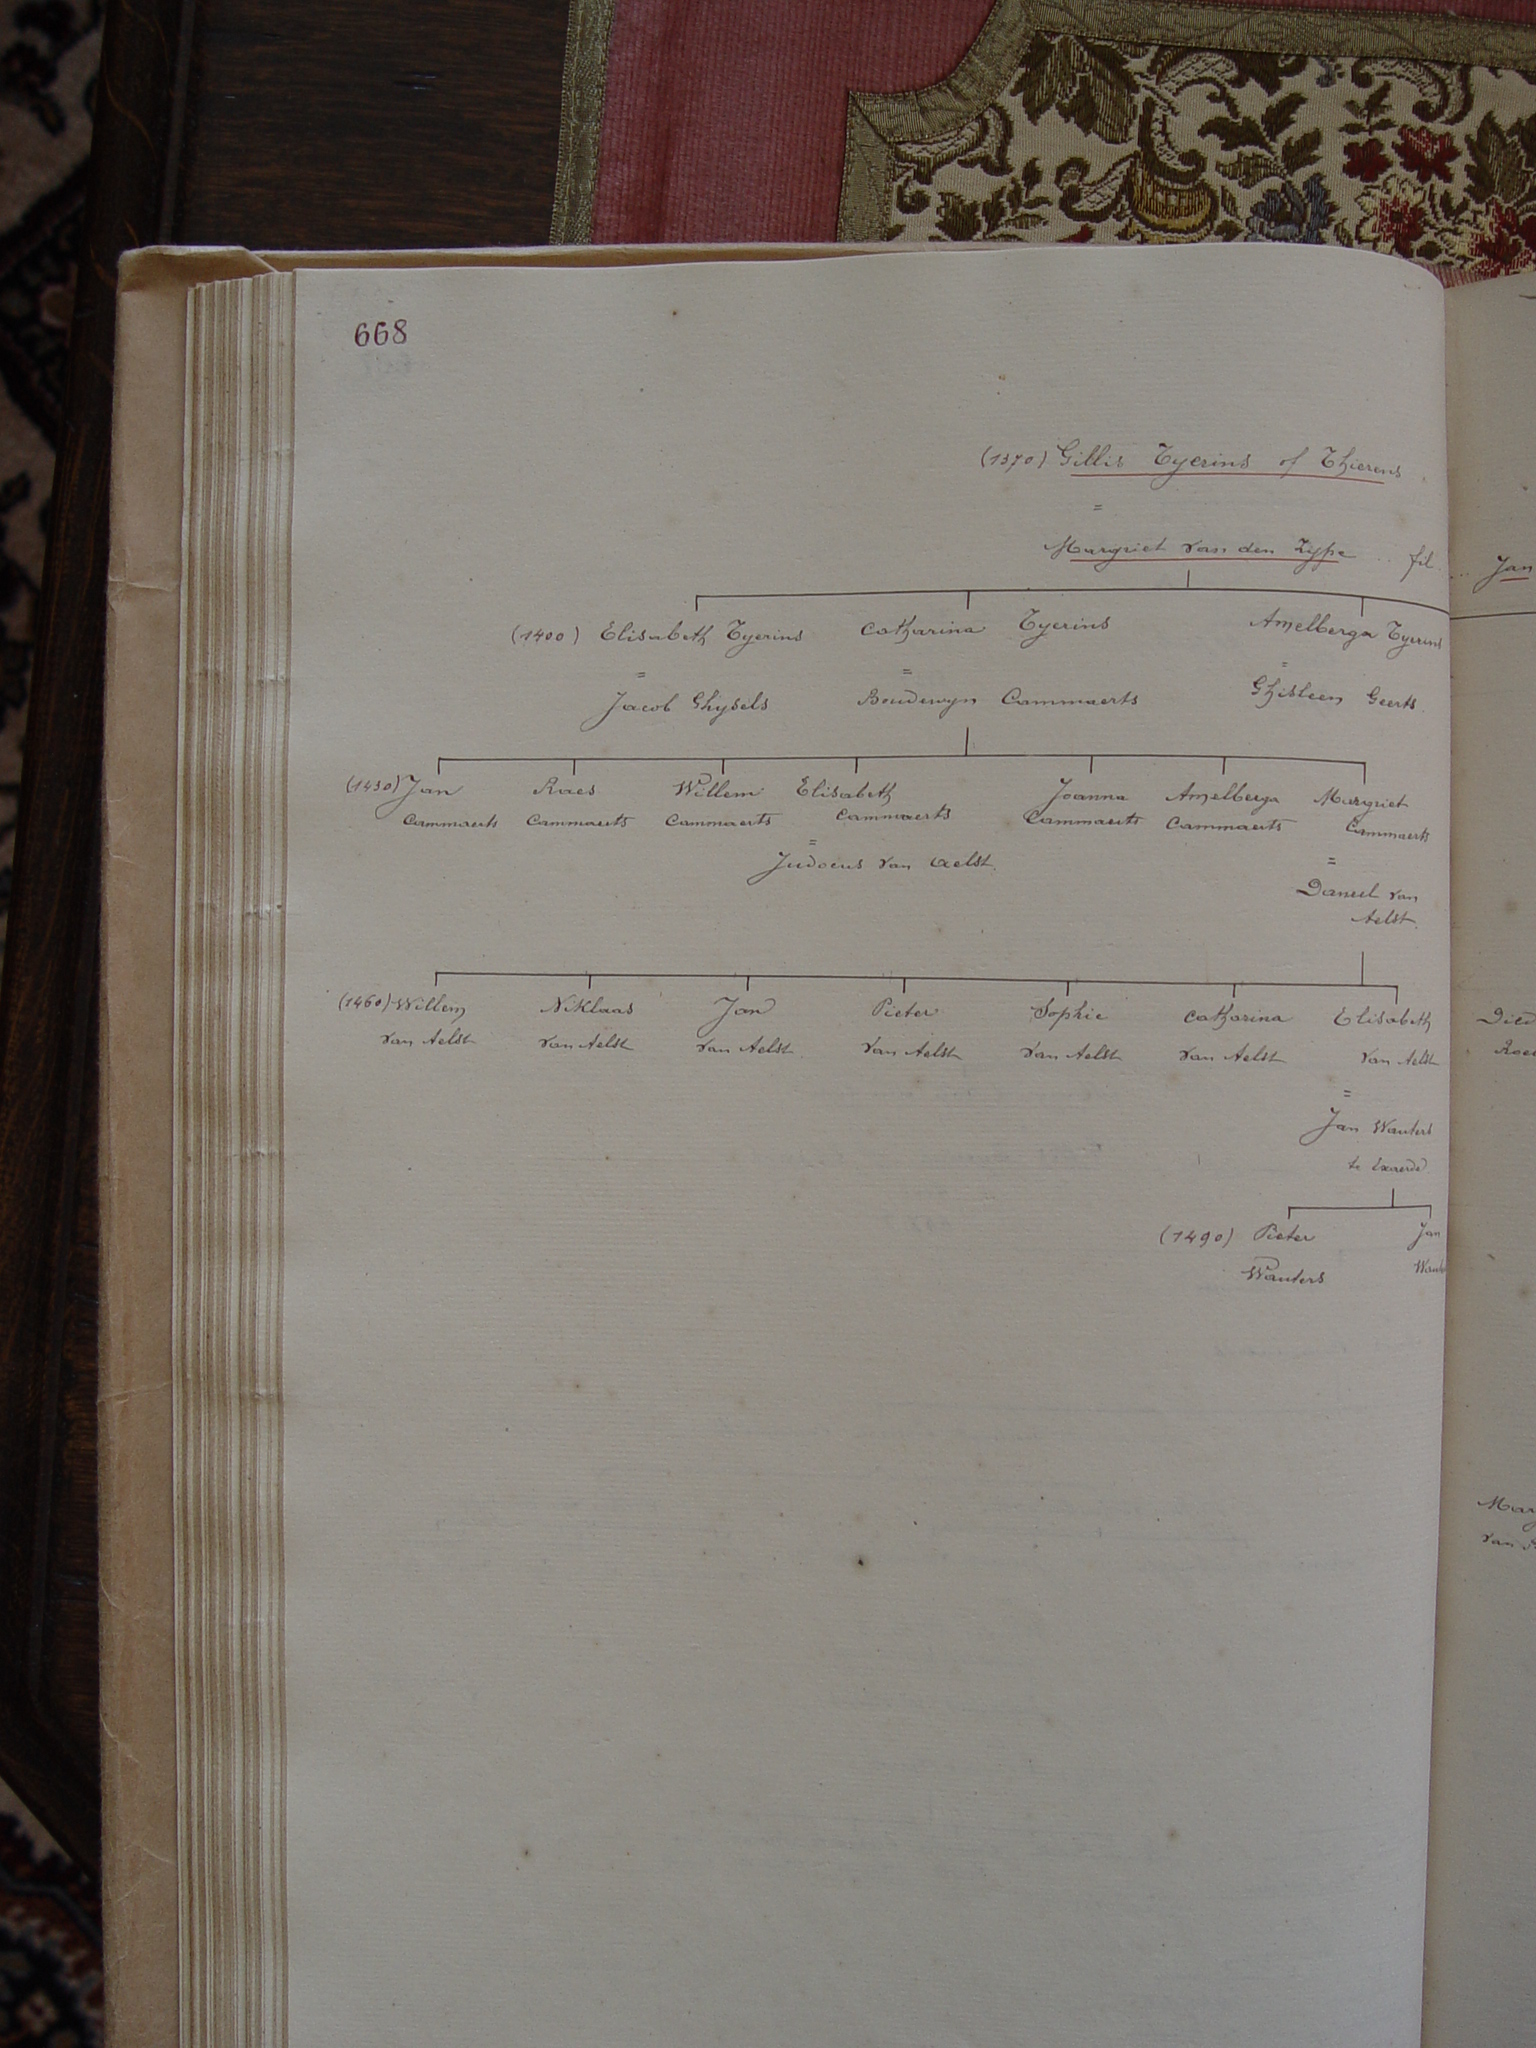 668
(1370) Gillis Tyerins of Thierens
=
Margriet van den Zype .. fil. ... Jan
(1400) Elisabeth Tyerins Catharina Tyerins Amelberga Tyerins
= = =
Jacob Ghysels Boudewyn Cammaerts Ghisleen Geerts.
(1430) Jan Raes Willem Elisabeth Joanna Amelberga Margriet
Cammaerts Cammaerts Cammaerts Cammaerts Cammaerts Cammaerts Cammaerts
= =
Judocus van Aelst. Daneel van
Aelst.
(1460) Willem Niklaas Jan Pieter Sophie Catharina Elisabeth
van Aelst van Aelst van Aelst van Aelst van Aelst van Aelst van Aelst
=
Jan Wauters
te Exaerde.
(1490) Pieter Jan
Wauters
Mar
van